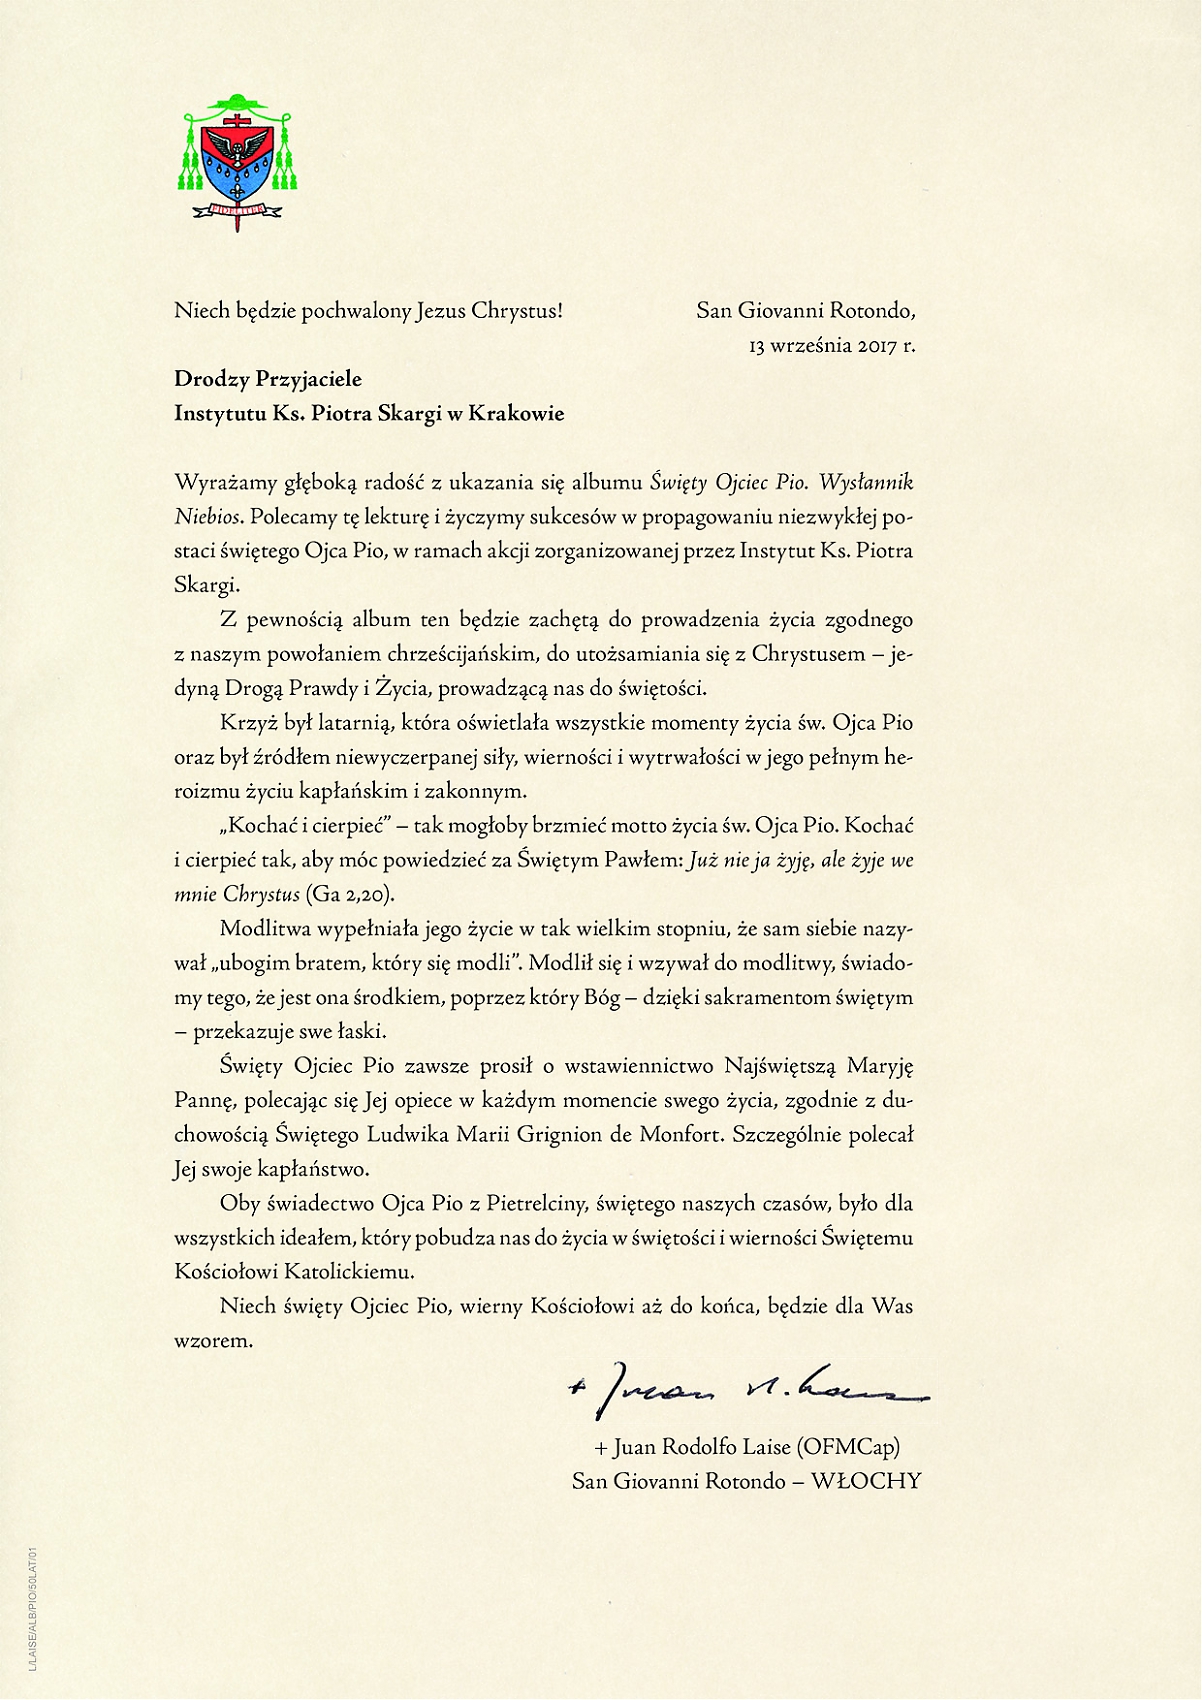 FIDELITER
Niech będzie pochwalony Jezus Chrystus!
San Giovanni Rotondo,
13 września 2017 r.
Drodzy Przyjaciele
Instytutu Ks. Piotra Skargi w Krakowie
Wyrażamy głęboką radość z ukazania się albumu Święty Ojciec Pio. Wysłannik
Niebios. Polecamy tę lekturę i życzymy sukcesów w propagowaniu niezwykłej po-
staci świętego Ojca Pio, w ramach akcji zorganizowanej przez Instytut Ks. Piotra
Skargi.
Z pewnością album ten będzie zachętą do prowadzenia życia zgodnego
z naszym powołaniem chrześcijańskim, do utożsamiania się z Chrystusem – je-
dyną Drogą Prawdy i Życia, prowadzącą nas do świętości.
Krzyż był latarnią, która oświetlała wszystkie momenty życia św. Ojca Pio
oraz był źródłem niewyczerpanej siły, wierności i wytrwałości w jego pełnym he-
roizmu życiu kapłańskim i zakonnym.
„Kochać i cierpieć” – tak mogłoby brzmieć motto życia św. Ojca Pio. Kochać
i cierpieć tak, aby móc powiedzieć za Świętym Pawłem: Już nie ja żyję, ale żyje we
mnie Chrystus (Ga 2,20).
Modlitwa wypełniała jego życie w tak wielkim stopniu, że sam siebie nazy-
wał „ubogim bratem, który się modli”. Modlił się i wzywał do modlitwy, świado-
my tego, że jest ona środkiem, poprzez który Bóg – dzięki sakramentom świętym
– przekazuje swe łaski.
Święty Ojciec Pio zawsze prosił o wstawiennictwo Najświętszą Maryję
Pannę, polecając się Jej opiece w każdym momencie swego życia, zgodnie z du-
chowością Świętego Ludwika Marii Grignion de Monfort. Szczególnie polecał
Jej swoje kapłaństwo.
Oby świadectwo Ojca Pio z Pietrelciny, świętego naszych czasów, było dla
wszystkich ideałem, który pobudza nas do życia w świętości i wierności Świętemu
Kościołowi Katolickiemu.
Niech święty Ojciec Pio, wierny Kościołowi aż do końca, będzie dla Was
wzorem.
+ Juan R. Laise
+ Juan Rodolfo Laise (OFMCap)
San Giovanni Rotondo – WŁOCHY
L/LAISE/ALB/PIO/50LAT/01